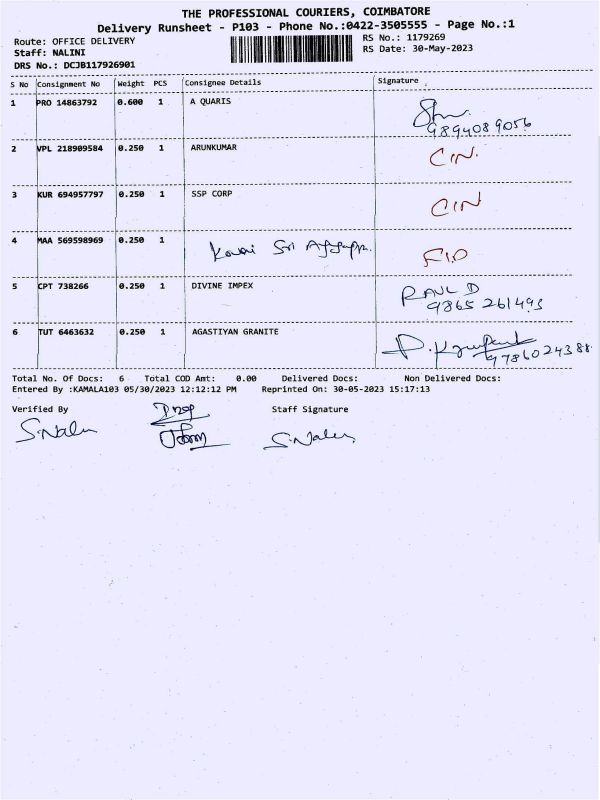 THE PROFESSIONAL COURIERS, COIMBATORE
Delivery Runsheet - P103 - Phone No.:0422-3505555 - Page No.:1
Route: OFFICE DELIVERY RS No.: 1179269
Staff: NALINI RS Date: 30-May-2023
DRS No.: DCJB117926901
S No Consignment No Weight PCS Consignee Details Signature
1 PRO 14863792 0.600 1 A QUARIS
9894089056
2 VPL 218909584 0.250 1 ARUNKUMAR CIN.
3 KUR 694957797 0.250 1 SSP CORP CIN
4 MAA 569598969 0.250 1 Kovai Sri
5 CPT 738266 0.250 1 DIVINE IMPEX RAUL D
9865 261493
6 TUT 6463632 0.250 1 AGASTIYAN GRANITE
9786024388
Total No. Of Docs: 6 Total COD Amt: 0.00 Delivered Docs: Non Delivered Docs:
Entered By :KAMALA103 05/30/2023 12:12:12 PM Reprinted On: 30-05-2023 15:17:13
Verified By Staff Signature